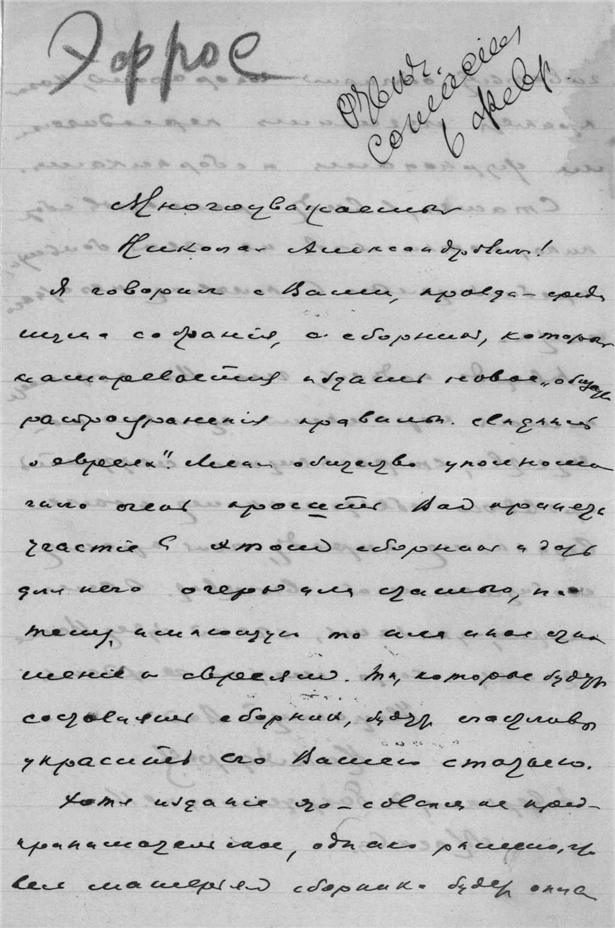 Эфрос
отвѣч.
согласіем
6 февр
Многоуважаемый
Николай Александрович!
Я говорил с Вами, правда – среди
шума собранія, о сборникѣ, который
намеревается издать новое „общ.
распространенія правильн. свѣдѣній
о евреях". Меня общество уполномо
чило очень просить Вас принять
участіе в этом сборникѣ и дать
для него очерк или статью, на
тему, имѣющую то или иное отно
шеніе к евреям. Тѣ, которые будут
составлять сборник, будут счастливы
украсить его Вашею статьею.
Хотя изданіе это – совсѣм не пред-
принимательское, однако рѣшено, что
весь матеріал сборника будет опла